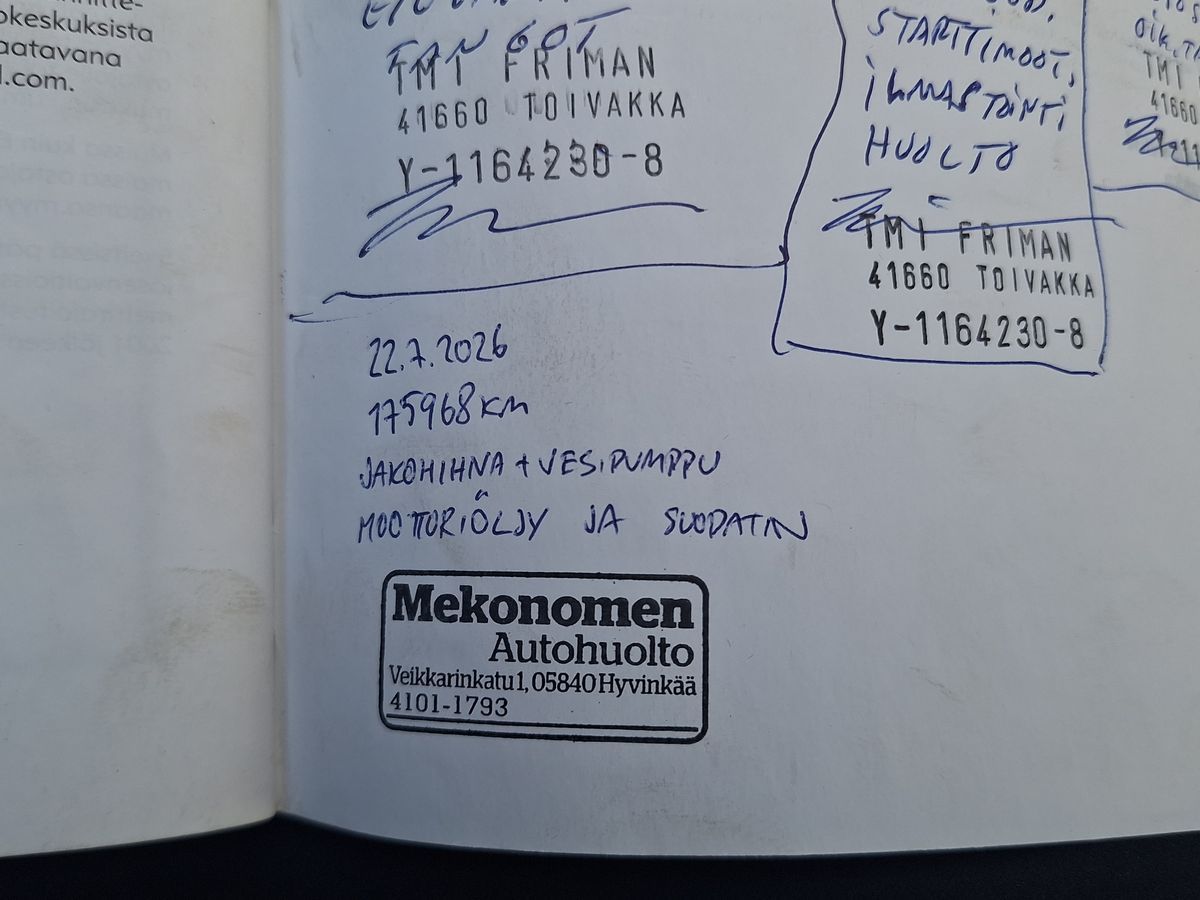 okeskuksista
aatavana
l.com.
TMI FRIMAN
41660 TOIVAKKA
Y-1164230-8
STARTTIMOOT,
ILMASTOINTI
HUOLTO
TMI FRIMAN
41660 TOIVAKKA
Y-1164230-8
TMI
41660
22.7.2026
175968 KM
JAKOHIHNA + VESIPUMPPU
MOOTTORIÖLJY JA SUODATIN
Mekonomen
Autohuolto
Veikkarinkatu 1, 05840 Hyvinkää
4101-1793